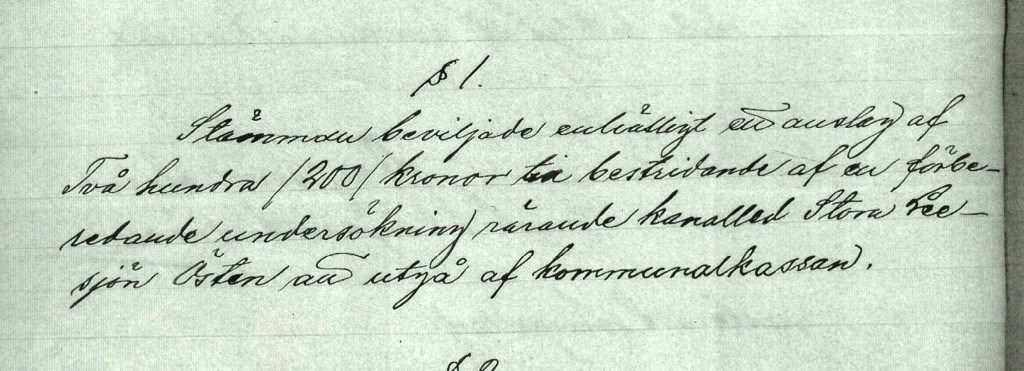 § 1.
Stämman beviljade enhälligt ett anslag af
Två hundra /200/ kronor till bestridande af en förbe-
redande undersökning rörande kanalled Stora Lee-
sjön Östen att utgå af kommunalkassan.
§ 2